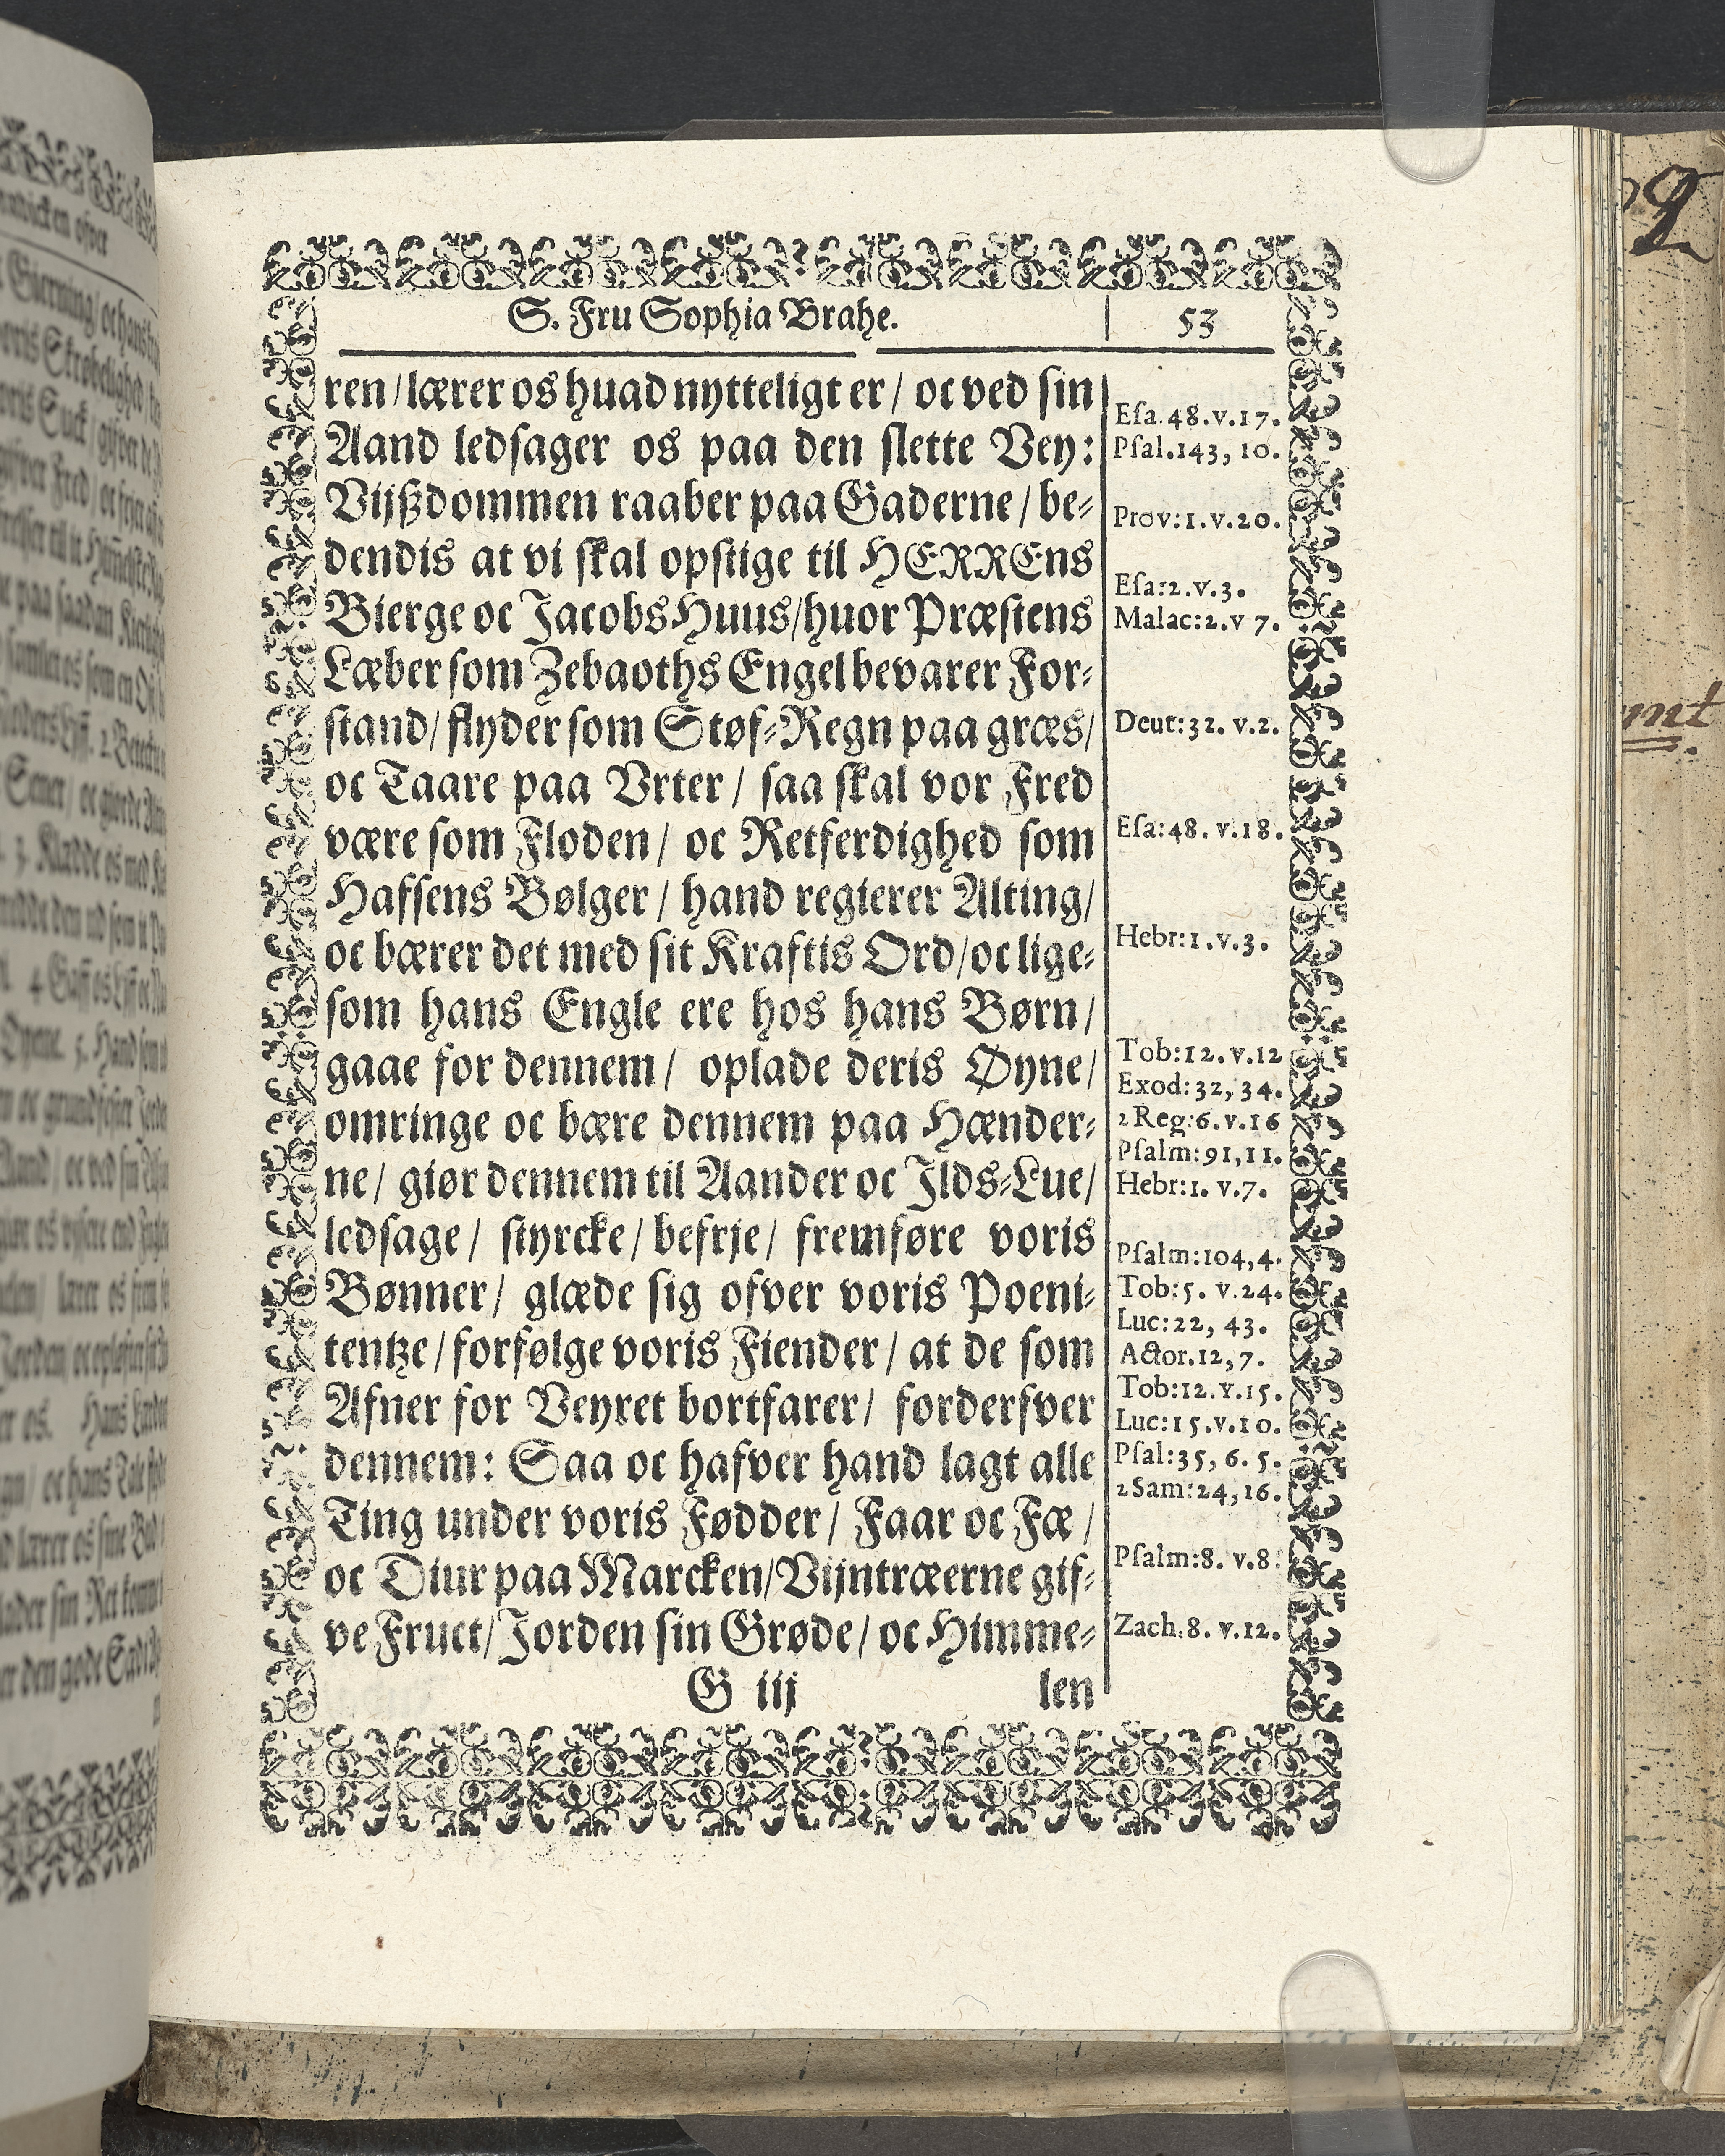 S. Fru Sophia Brahe.
53
ren/lærer os huad nytteligt er/ oc ved sin
Aand ledsager os paa den slette Vey:
Vijßdommen raaber paa Gaderne/be-
dendis at vi skal opstige til HERREns
Bierge oc Jacobs Huus/huor Præstens
Læber som Zebaoths Engel bevarer For-
stand/flyder som Støf-Regn paa græs/
oc Taare paa Vrter/ saa skal vor Fred
være som Floden/ oc Retferdighed som
Hafsens Bølger/ hand regierer Alting/
oc bærer det med sit Kraftis Ord/oc lige-
som hans Engle ere hos hans Børn/
gaae for dennem/ oplade deris Øyne/
omringe oc bære dennem paa Hænder-
ne/ giør dennem til Aander oc Jlds-Lue/
ledsage/ styrcke/ befrje/ fremføre voris
Bønner/ glæde sig ofver voris Poeni-
tentze/forfølge voris Fiender/ at de som
Afner for Veyret bortfarer/ forderfver
dennem: Saa oc hafver hand lagt alle
Ting under voris Fødder/ Faar oc Fæ/
oc Diur paa Marcken/Vijntræerne gif-
ve Fruct/Jorden sin Grøde/ oc Himme-
G iij
len
Esa.48.v.17.
Psal.143, 10.
Prov:1.v.20.
Esa:2.v.3.
Malac:2.v 7.
Deut:32. v.2.
Esa:48. v.18.
Hebr:1.v.3.
Tob:12.v.12
Exod:32, 34.
2 Reg:6.v.16
Psalm:91,11.
Hebr:1. v.7.
Psalm:104,4.
Tob:5. v.24.
Luc:22, 43.
Actor.12,7.
Tob:12.v.15.
Luc:15.v.10.
Psal:35, 6. 5.
2 Sam:24,16.
Psalm:8. v.8.
Zach:8. v.12.